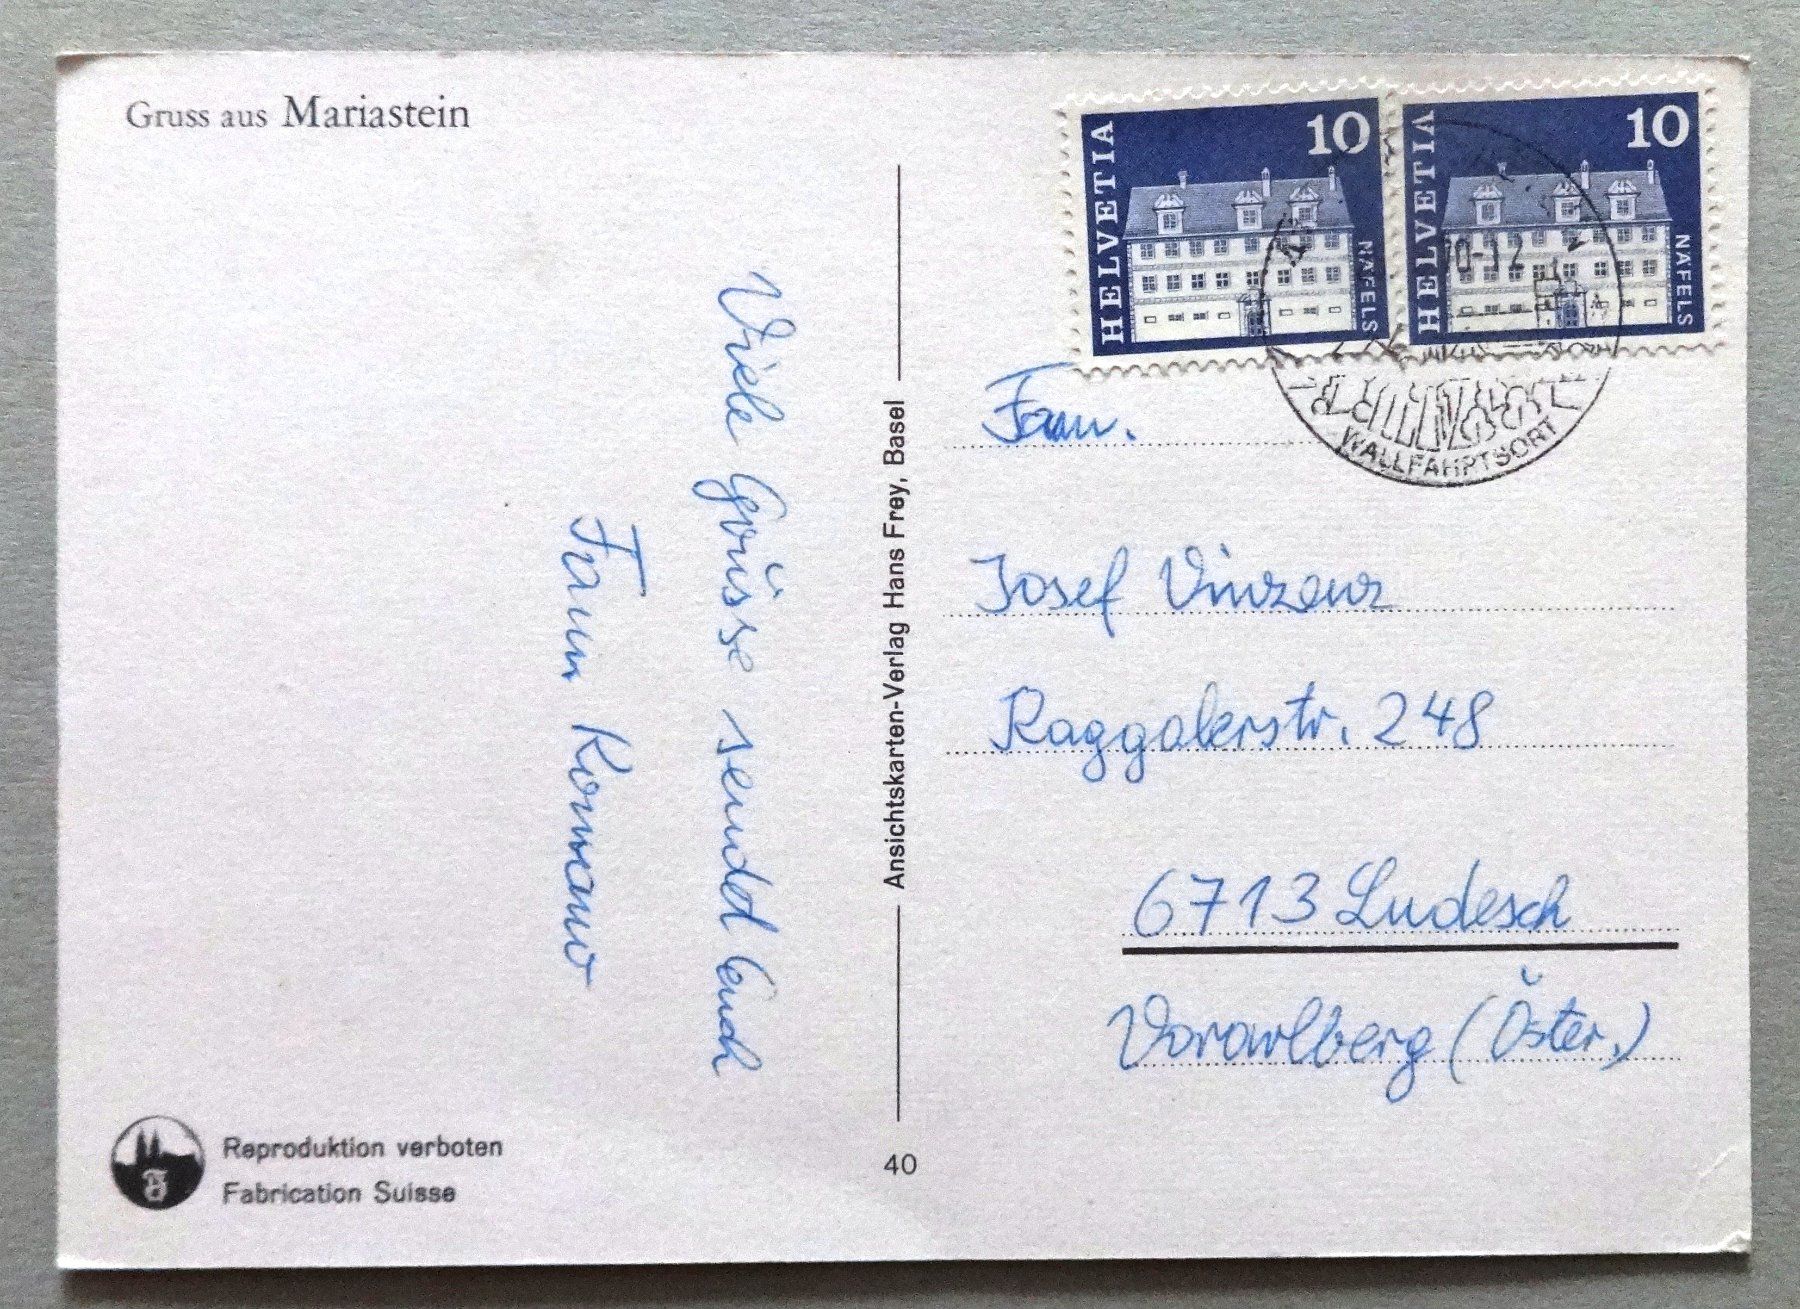 Gruss aus Mariastein
Viele Grüsse sendet Euch
Fam Komano
Reproduktion verboten
Fabrication Suisse
Ansichtskarten-Verlag Hans Frey, Basel
40
HELVETIA
10
NÄFELS
HELVETIA
10
NÄFELS
WALLFAHRTSORT
Fam.
Josef Vinzenz
Raggalerstr. 248
6713 Ludesch
Vorarlberg (Öster.)